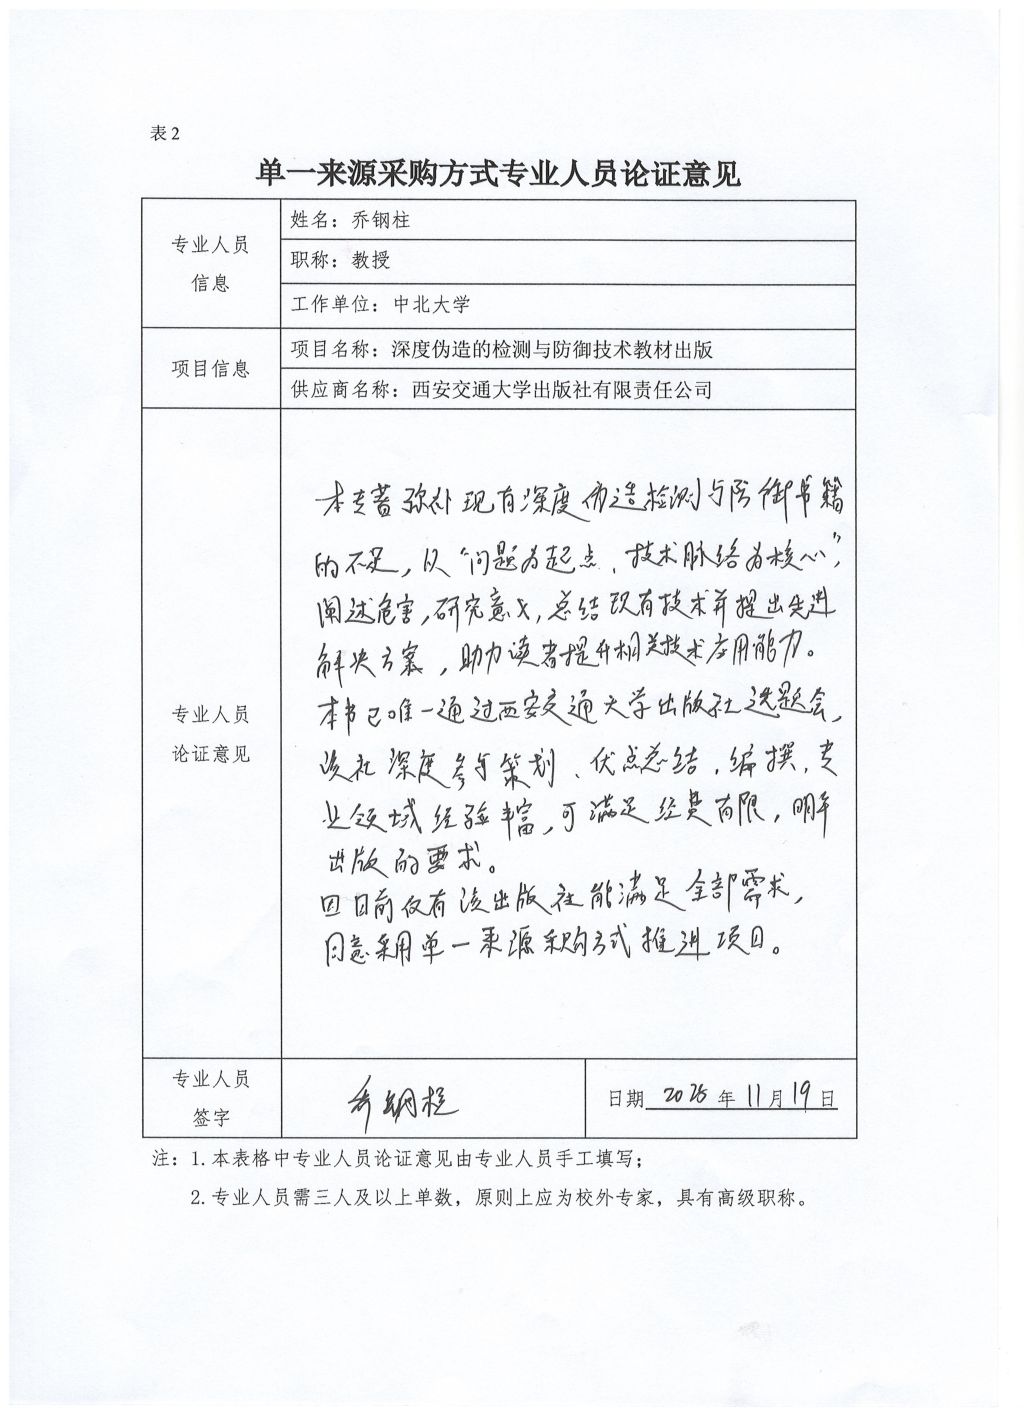 表2
单一来源采购方式专业人员论证意见
专业人员
信息
姓名：乔钢柱
职称：教授
工作单位：中北大学
项目信息
项目名称：深度伪造的检测与防御技术教材出版
供应商名称：西安交通大学出版社有限责任公司
专业人员
论证意见
本专著弥补现有深度伪造检测与防御书籍
的不足，从“问题为起点、技术脉络为核心”，
阐述危害，研究意义，总结现有技术并提出先进
解决方案，助力读者提升相关技术应用能力。
本书已唯一通过西安交通大学出版社选题会，
该社深度参与策划、优点总结，编撰，专
业领域经验丰富，可满足经费有限，明年
出版的要求。
因目前仅有该出版社能满足全部需求，
同意采用单一来源采购方式推进项目。
专业人员
签字
乔钢柱
日期 2025 年 11 月 19 日
注：1.本表格中专业人员论证意见由专业人员手工填写；
2.专业人员需三人及以上单数，原则上应为校外专家，具有高级职称。